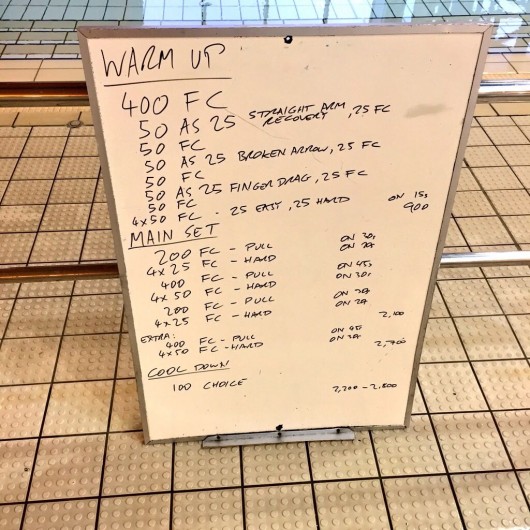 WARM UP
400 FC
50 AS 25 STRAIGHT ARM RECOVERY, 25 FC
50 FC
50 AS 25 BROKEN ARROW, 25 FC
50 FC
50 AS 25 FINGER DRAG, 25 FC
50 FC
4x50 FC - 25 EASY, 25 HARD ON 15s
900
MAIN SET
200 FC - PULL ON 30s
4x25 FC - HARD ON
400 FC - PULL ON 45s
4x50 FC - HARD ON 30s
200 FC - PULL ON
4x25 FC - HARD ON
2,100
EXTRA:
400 FC - PULL ON 45
4x50 FC - HARD ON
2,700
COOL DOWN
100 CHOICE 2,200 - 2,800